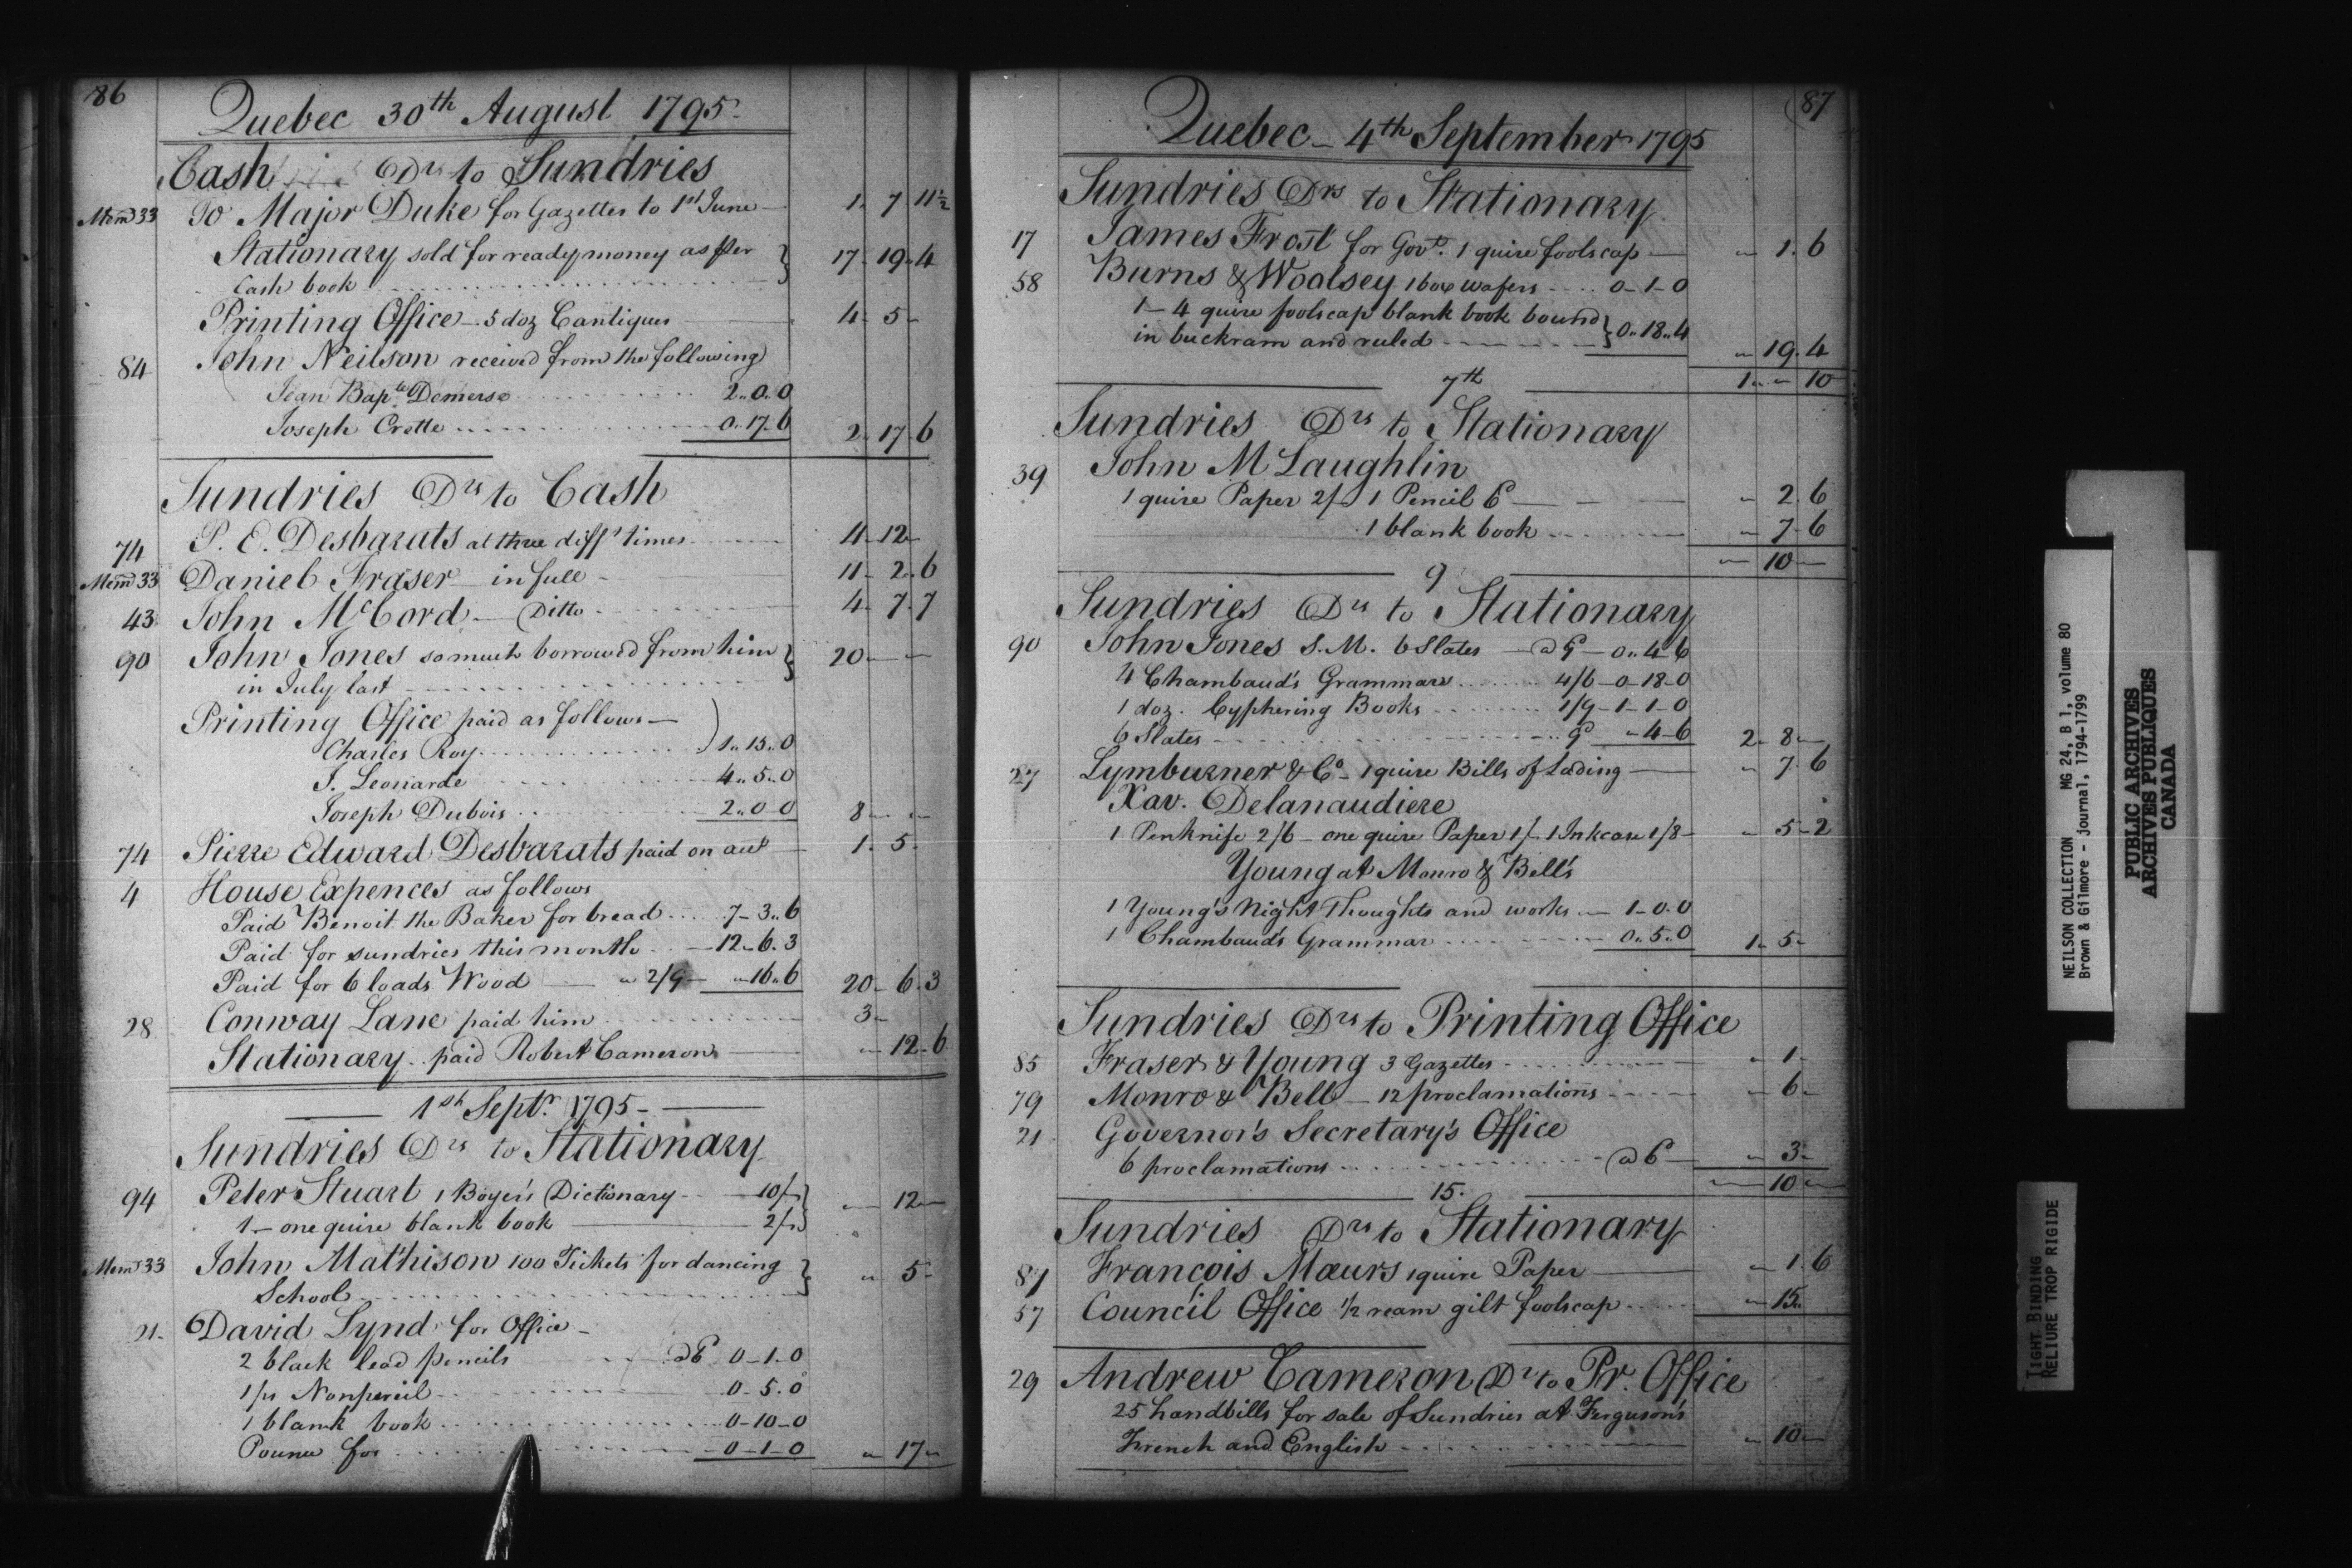 86
Quebec 30th August 1795.
Cash Drs to Sundries
Memd 33 To Major Duke for Gazettes to 1st June 1. 7. 11½
Stationary sold for ready money as per } 17. 19. 4
Cash book
Printing Office - 5 doz Cantiques 4. 5 -
84 John Neilson received from the following
Jean Bapte Demers 2..0.0
Joseph Crette 0.17.6 2. 17. 6
Sundries Drs to Cash
74 P. E. Desbarats at three difft times 11 - 12 -
Memd 33 Daniel Fraser in full - 11 - 2. 6
43 John McCord - Ditto 4. 7. 7
90 John Jones so much borrowed from him } 20 - -
in July last
Printing Office paid as follows -
Charles Roy 1..15..0
J. Leonarde 4..5..0
Joseph Dubois 2..0.0 8 - -
74 Pierre Edward Desbarats paid on acct 1. 5.
4 House Expences as follows
Paid Benoit the Baker for bread 7 - 3..6
Paid for sundries this month 12 - 6. 3
Paid for 6 loads Wood 2/9 - 16..6 20 - 6. 3
28 Conway Lane paid him 3 -
Stationary - paid Robert Cameron 12 - 6
1st Septr 1795 -
Sundries Drs to Stationary
94 Peter Stuart 1 Boyer's Dictionary 10/- } 12 -
1 - one quire blank book 2/-
Memd 33 John Mathison 100 Tickets for dancing } 5 -
School
21. David Lynd for Office -
2 black lead pencils @ 6d 0 - 1 - 0
1/2 Nonpereil 0 - 5. 0
1 blank book 0 - 10 - 0
Pounce for 0 - 1 - 0 17 -
87
Quebec - 4th September 1795
Sundries Drs to Stationary
17 James Frost for Govt. 1 quire foolscap - 1. 6
58 Burns & Woolsey 1 box wafers 0 - 1 - 0
1 - 4 quire foolscap blank book bound } 0..18..4
in buckram and ruled 19. 4
7th 1 - - 10
Sundries Drs to Stationary
39 John M Laughlin
1 quire Paper 2/- 1 Pencil 6d 2. 6
1 blank book 7 - 6
9 10 -
Sundries Drs to Stationary
90 John Jones S. M. 6 Slates @ 9d 0..4 6
4 Chambaud's Grammars 4/6 - 0 - 18 - 0
1 doz. Cyphering Books 1/9 - 1 - 1 - 0
6 Slates 9d - 4 - 6 2 - 8 -
27 Lymburner & Co - 1 quire Bills of Lading 7. 6
Xav. Delanaudiere
1 Penknife 2/6 - one quire Paper 1/- 1 Inkcase 1/8 - 5 - 2
Young at Monro & Bell's
1 Young's Night Thoughts and works 1 - 0. 0
1 Chambaud's Grammar 0..5..0 1. 5 -
Sundries Drs to Printing Office
85 Fraser & Young 3 Gazettes 1 -
79 Monro & Bell - 12 proclamations 6 -
21 Governor's Secretary's Office
6 proclamations @ 6d 3 -
15. 10 -
Sundries Drs to Stationary
87 François Mœurs 1 quire Paper 1. 6
57 Council Office ½ ream gilt foolscap 15..
29 Andrew Cameron Dr to Pr. Office
25 handbills for sale of Sundries at Ferguson's
French and English 10 -
NEILSON COLLECTION MG 24, B 1, volume 80
Brown & Gilmore - journal, 1794-1799
PUBLIC ARCHIVES
ARCHIVES PUBLIQUES
CANADA
TIGHT BINDING
RELIURE TROP RIGIDE